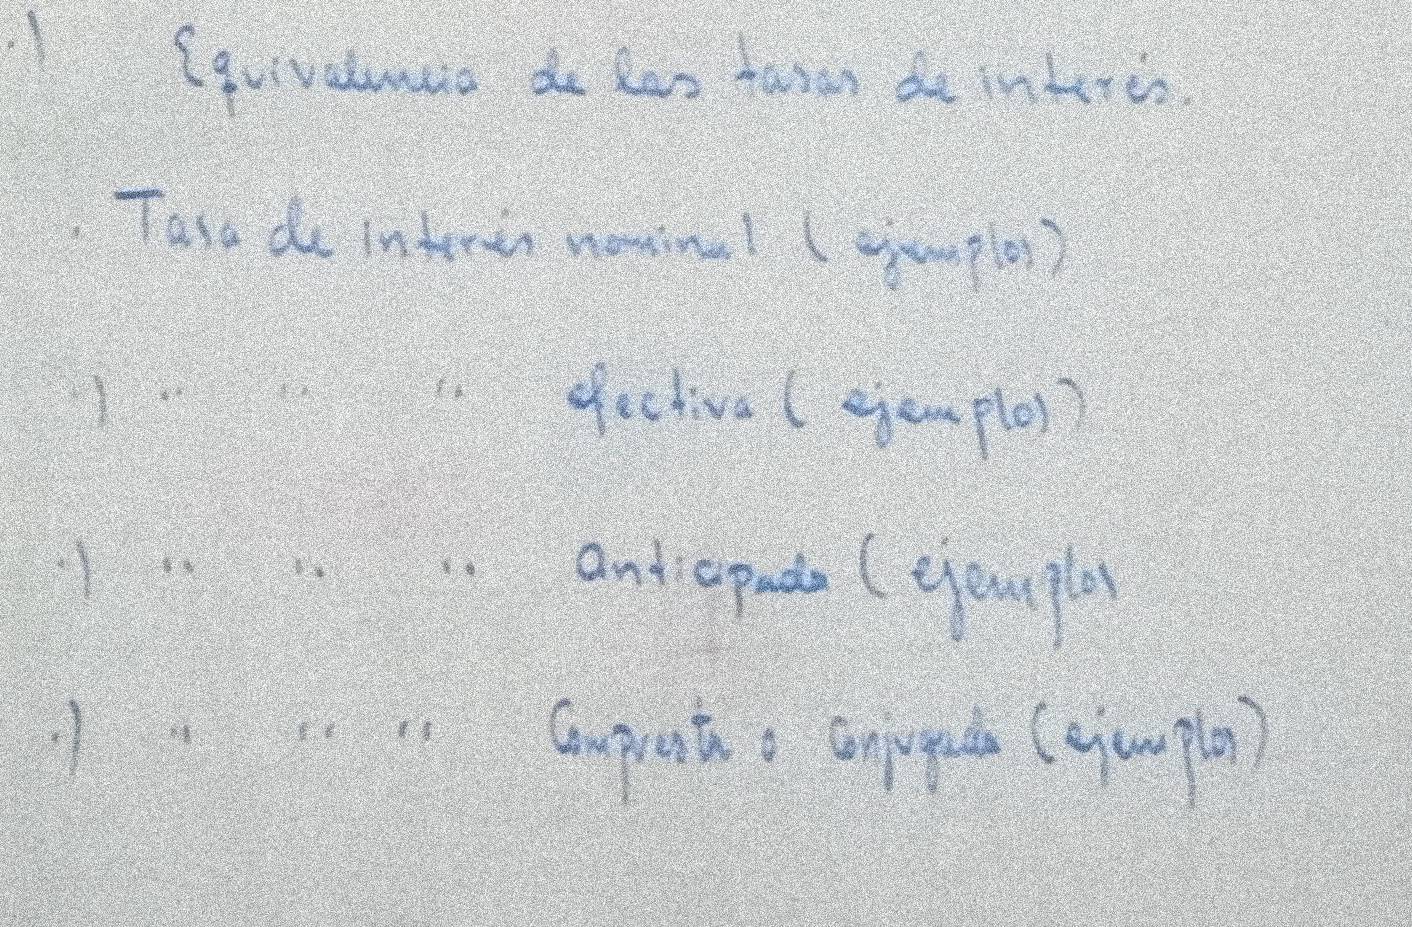 .) Equivalencia de las tasas de interés.
. Tasa de interés nominal (ejemplos)
.) " " " efectiva (ejemplos)
.) " " " anticipada (ejemplos
.) " " " Compuesta o Conjugada (ejemplos)